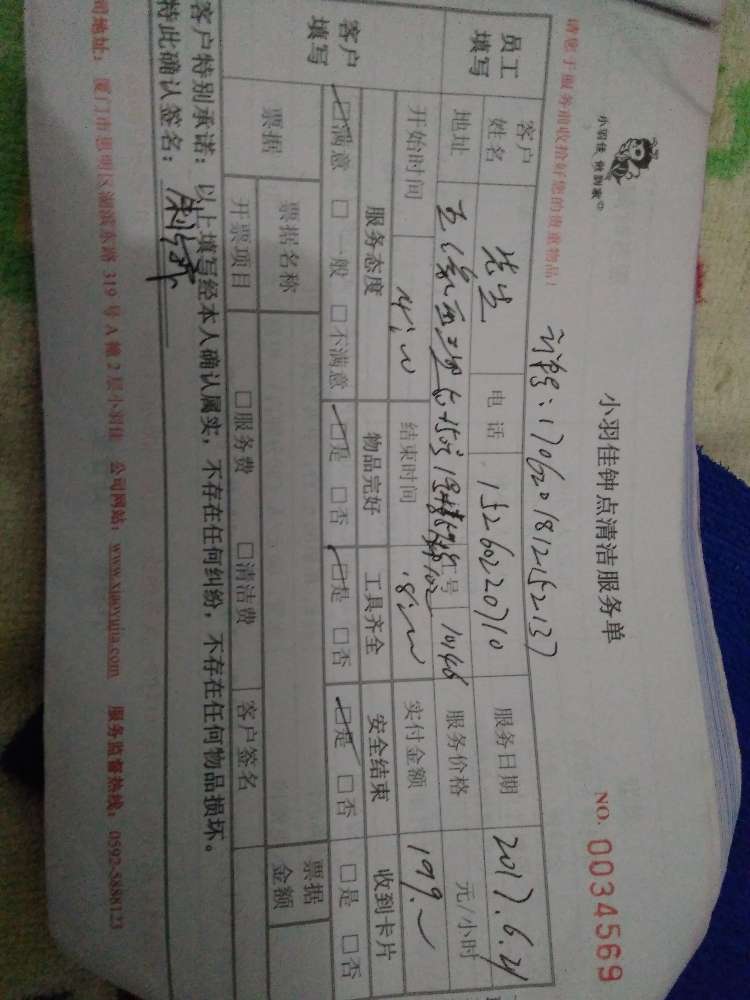 小羽佳 做到家
小羽佳钟点清洁服务单
NO. 0034569
请您于服务前收拾好您的贵重物品！
员工填写
客户姓名 先生 电话 15260220710 服务日期 2017.6.21
地址 工号 10146 服务价格 元/小时
开始时间 结束时间 实付金额 199.
客户填写
服务态度 物品完好 工具齐全 安全结束 收到卡片
☑满意 □一般 □不满意 ☑是 □否 ☑是 □否 ☑是 □否 □是 □否
票据 票据名称 票据金额
开票项目 □服务费 □清洁费 客户签名
客户特别承诺：以上填写经本人确认属实，不存在任何纠纷，不存在任何物品损坏。
特此确认签名：
司地址：厦门市思明区湖滨东路 319 号 A 幢 2 层小羽佳 公司网站：www.xiaoyujia.com 服务监督热线：0592-5888123